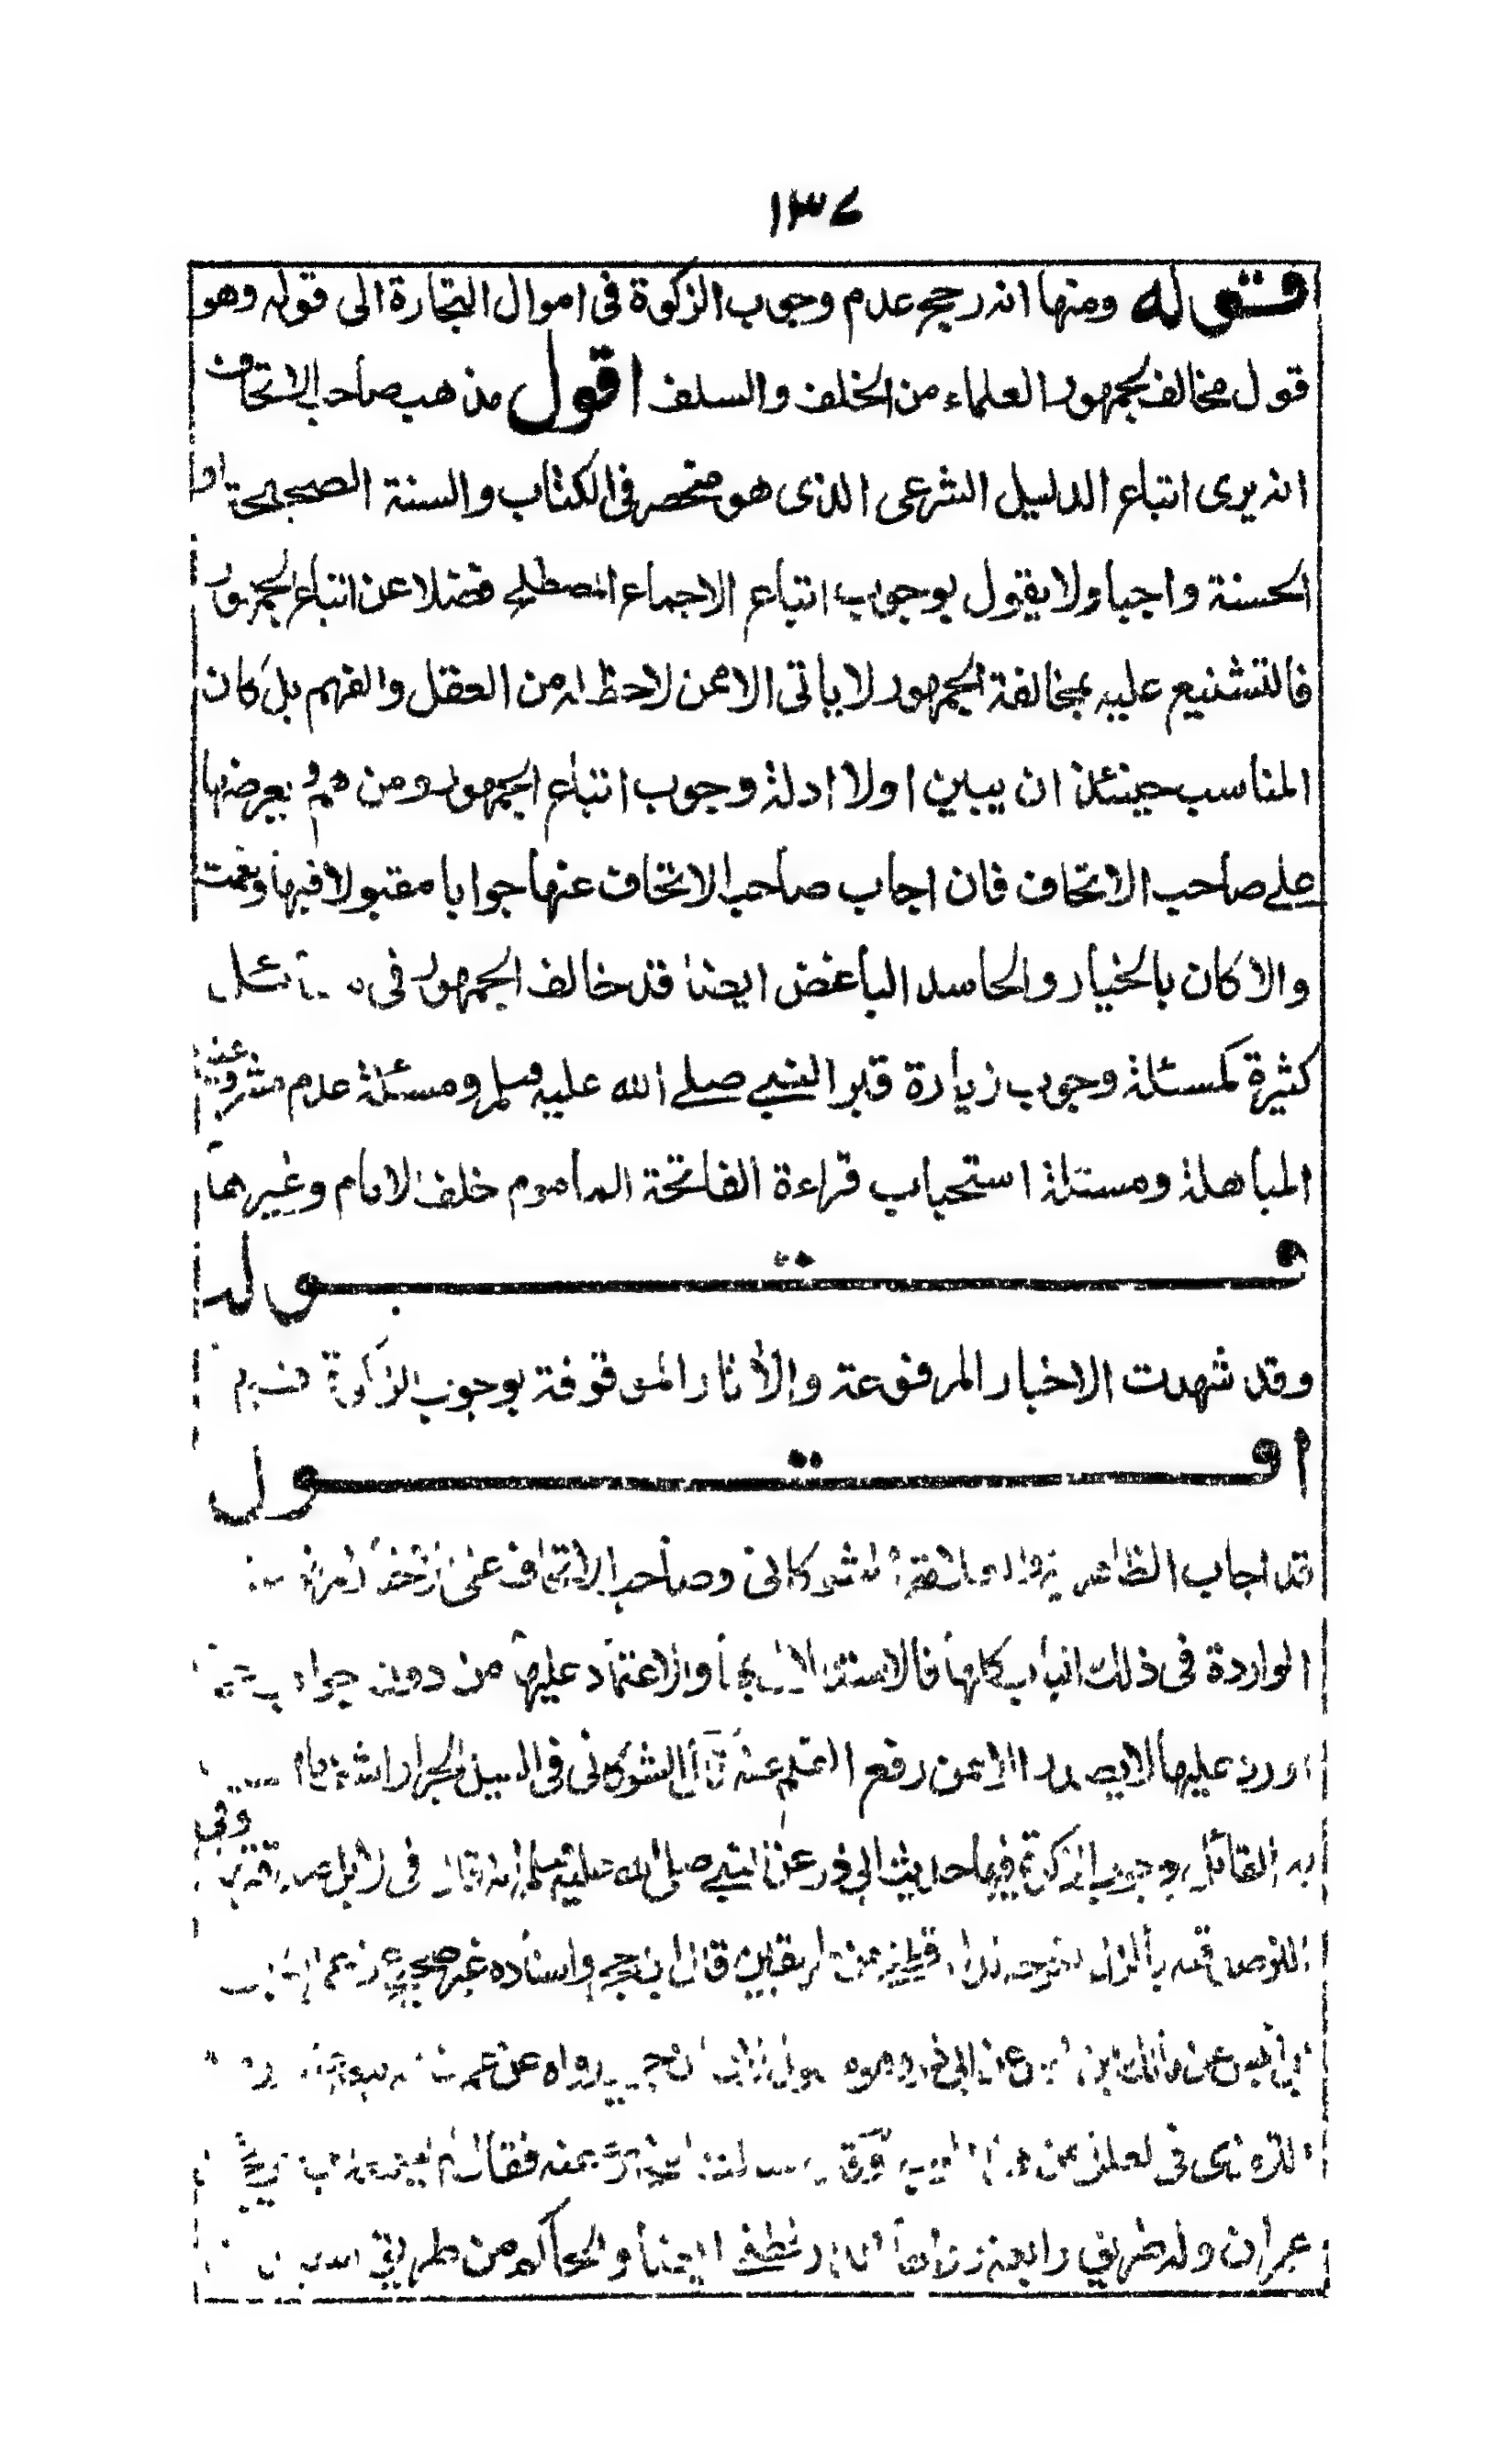 ١٣٧
قوله ومنها انه رجح عدم وجوب الزكوة فى اموال التجارة الى قوله وهو
قول مخالف لجمهور العلماء من الخلف والسلف اقول مذهب صاحب الاتحاف
انه يرى اتباع الدليل الشرعى الذى هو منحصر فى الكتاب والسنة الصحيحة او
الحسنة واجبا ولا يقول بوجوب اتباع الاجماع المصطلح فضلا عن اتباع الجمهور
فالتشنيع عليه بمخالفة الجمهور لا ياتى الا ممن لا حظ له من العقل والفهم بل كان
المناسب حينئذ ان يبين اولا ادلة وجوب اتباع الجمهور ومن ثم يعرضها
على صاحب الاتحاف فان اجاب صاحب الاتحاف عنها جوابا مقبولا فبها ونعمت
والا كان بالخيار والحاسد الباغض ايضا قد خالف الجمهور فى مسائل
كثيرة كمسئلة وجوب زيارة قبر النبى صلى الله عليه وسلم ومسئلة عدم مشروعية
المباهلة ومسئلة استحباب قراءة الفاتحة المأموم خلف الامام وغيرهما
قوله
وقد شهدت الاخبار المرفوعة والأثار الموقوفة بوجوب الزكوة
اقول
قد اجاب الشوكانى وصاحب الاتحاف عن
الواردة فى ذلك الباب كلها فالاستدلال بها والاعتماد عليها من دون جواب
اورد عليها لا يصدر الا ممن رفع القلم عنه قال الشوكانى فى السيل الجرار
به القائل بوجوب الزكوة فيها حديث ابى ذر عن النبى صلى الله عليه وسلم انه قال فى الابل صدقتها وفى
البز صدقته بالزاى من طريقين قال ابن حجر واسناده غير صحيح
عن مالك بن عن ابى ذر وهو رواه عن
الترمذى فى العلل عن فقال لم
عمران وله طريق رابعة رواها ايضا والحاكم من طريق